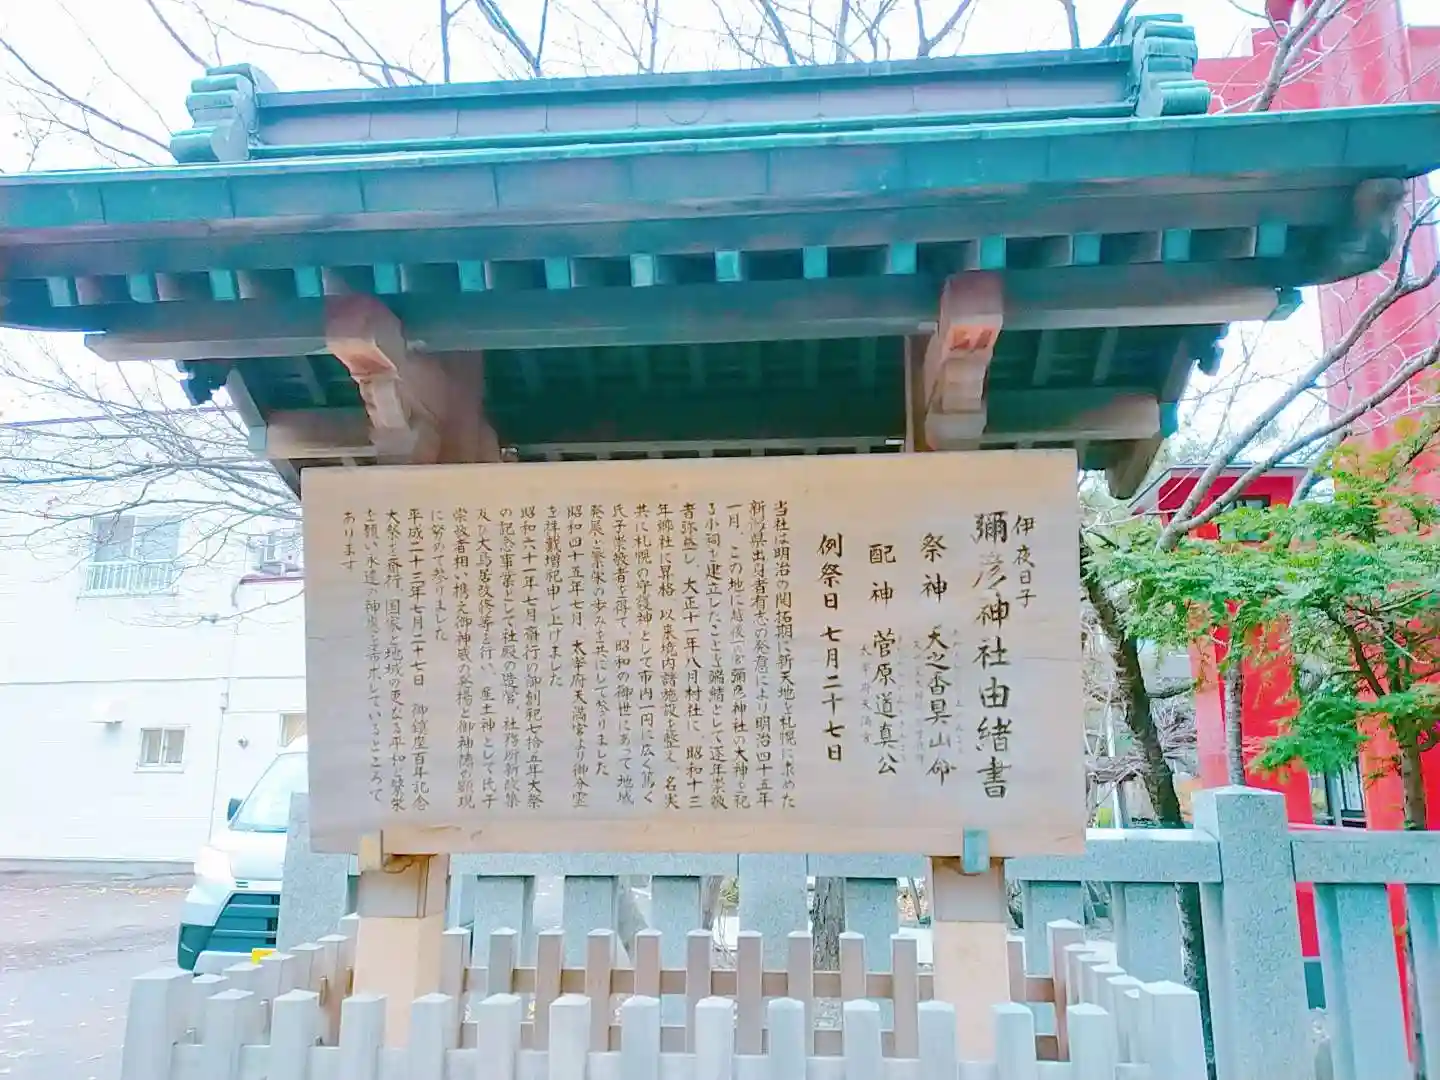 伊夜日子
彌彦神社由緒書
祭神 天之香具山命
配神 菅原道真公
太宰府天満宮
例祭日 七月二十七日
当社は明治の開拓期に新天地を札幌に求めた
新潟県出身者有志の発意により明治四十五年
一月、この地に越後一宮彌彦神社の大神を祀
る小祠を建立したことを端緒として逐年崇敬
者弥益し、大正十一年八月村社に、昭和十三
年郷社に昇格 以来境内諸施設を整え 名実
共に札幌の守護神として市内一円に広く篤く
氏子崇敬者を得て 昭和の御世にあって地域
発展と繁栄の歩みを共にして参りました
昭和四十五年七月 太宰府天満宮より御分霊
を拝戴増祀申し上げました
昭和六十一年七月斎行の御創祀七拾五年大祭
の記念事業として社殿の造営 社務所新改築
及び大鳥居改修等を行い、産土神として氏子
崇敬者相い携え御神威の発揚と御神徳の顕現
に努めて参りました
平成二十三年七月二十七日 御鎮座百年記念
大祭を斎行 国家と地域の更なる平和と繁栄
を願い永遠の神
しているところで
あります